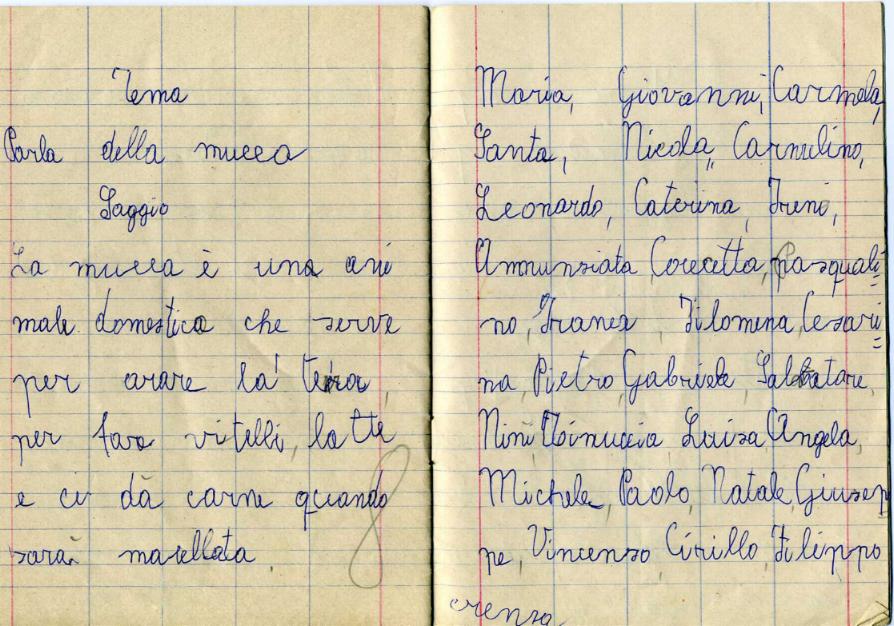 Tema
Parla della mucca
Saggio
La mucca è una ani
male domestico che serve
per arare la terra,
per fare vitelli, latte
e ci dà carne quando
sarà macellata
8
Maria, Giovanni, Carmela,
Santa, Nicola, Carmelino,
Leonardo, Caterina, Ireni,
Annunsiata Concetta, Pasquali
no, Franca Filomena, Cesari
na Pietro Gabriele Salbatare,
Nini Luisa Angela,
Michele, Paolo, Natale, Giusep
pe, Vincenso Cirillo, Filippo